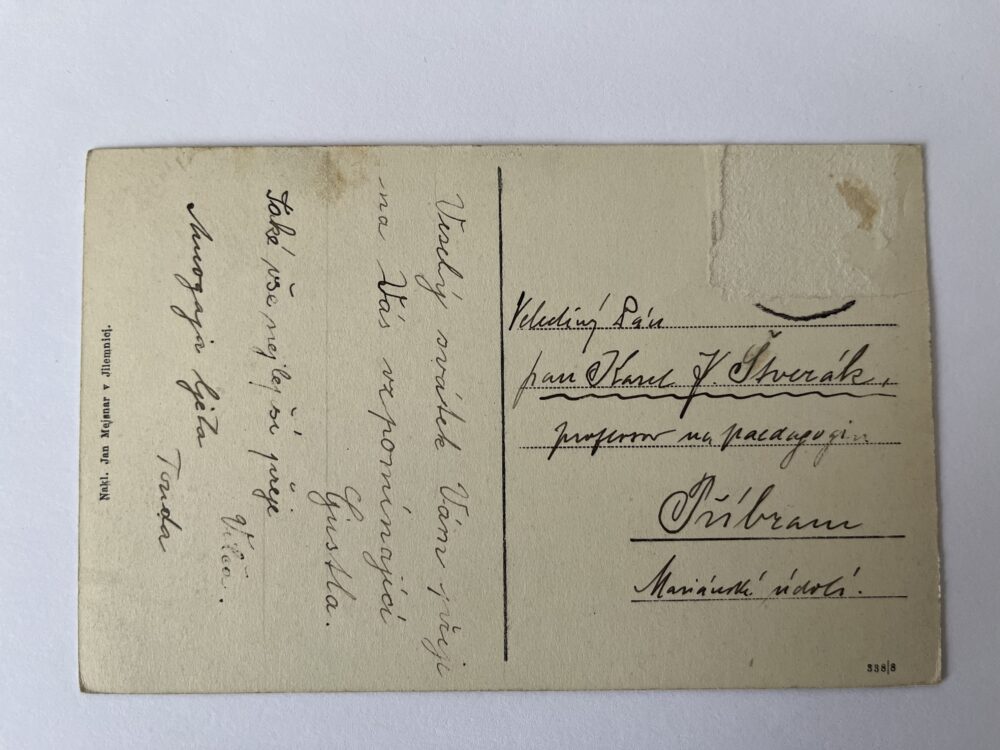 Veselý svátek Vám přeji
na Vás vzpomínající
Gustla.
Také vše nejlepší přeje
Vilča.
Tonda
Velectěný Pán
pan Karel V. Štverák,
professor na paedagogiu
Příbram
Mariánské údolí.
Nakl. Jan Mejsnar v Jilemnici.
338/8